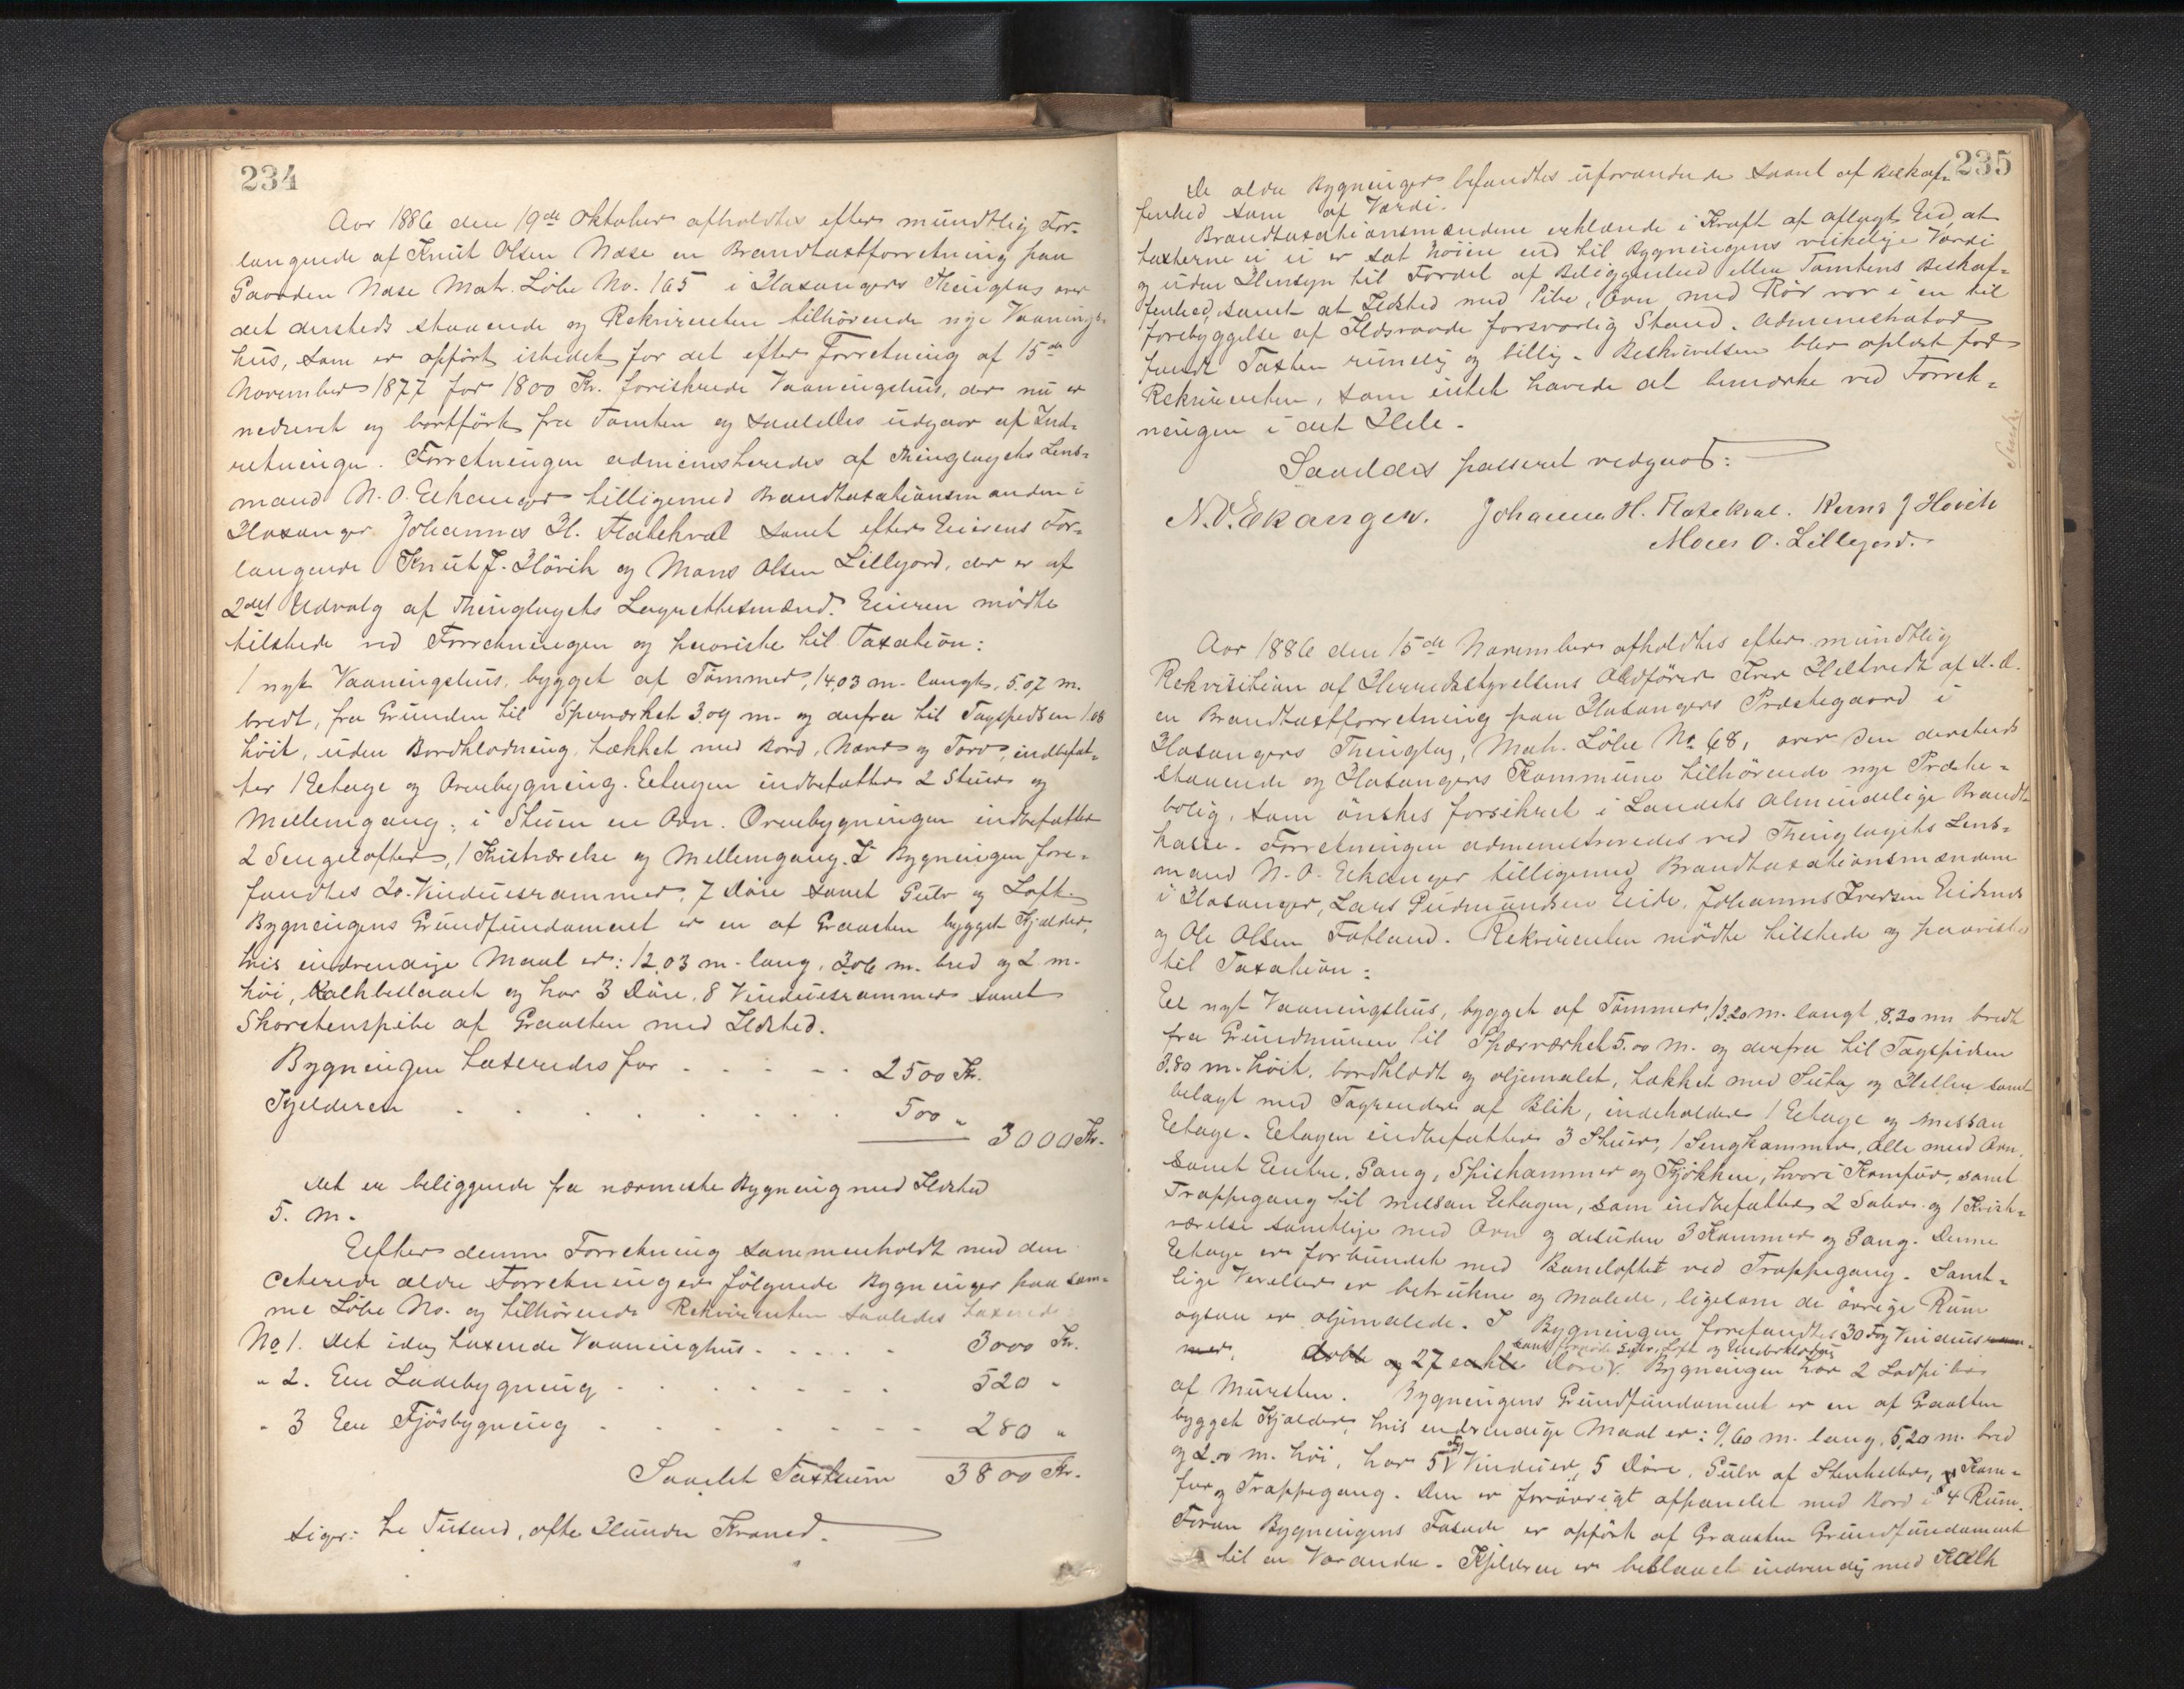 234
Aar 1886 den 19de Oktober afholdtes efter mundtlig For-
langende af Knut Olsen Nase en Brandtaxtforretning paa
Gaarden Nase Matr. Löbe No. 165 i Hosangers Thinglag over
det dersteds staaende og Rekvirenten tilhörende nye Vaanings-
hus, som er opfört istedet for det efter Forretning af 15de
November 1877 for 1800 Kr. forsikrede Vaaningshus, der nu er
nedrevet og bortfört fra Tomten og saaledes udgaar af Ind-
retningen. Forretningen administreredes af Thinglagets Lens-
mand N. O. Eekanger tilligemed Brandtaxationsmanden i
Hosanger Johannes H. Flatekval samt efter Eierens For-
langende Knut J. Hövik og Mons Olsen Lillejord, der er af
2det Udvalg af Thinglagets Lagrettesmænd. Eieren mödte
tilstede ved Forretningen og paaviste til Taxation:
1 nyt Vaaningshus, bygget af Tömmer, 14,03 m. langt, 5.07 m.
bredt, fra Grunden til Sperværket 3.09 m. og derfra til Tagspidsen 1.08
höit, uden Bordklædning, tækket med Bord, Næver og Torv, indbefat-
ter 1 Etage og Overbygning. Etagen indbefatter 2 Stuer og
Mellemgang; i Stuen en Ovn. Overbygningen indbefatter
2 Sengelofter, 1 Kvistværelse og Mellemgang. I Bygningen fore-
fandtes 20 Vinduesrammer, 7 Döre samt Gulv og Loft.
Bygningens Grundfundament er en af Graasten bygget Kjælder,
hvis indvendige Maal er: 12,03 m. lang, 3,06 m. bred og 2 m.
höi, Kalkbeslaaet og har 3 Döre, 8 Vinduesrammer samt
Skorstenspibe af Graasten med Ildsted.
Bygningen taxeredes for . . . . . 2500 Kr.
Kjelderen . . . . . . . . 500 "
3000 Kr.
Det er beliggende fra nærmeste Bygning med Ildsted
5. m.
Efter denne Forretning sammenholdt med den
citerede ældre Forretning er fölgende Bygninger paa sam-
me Löbe No. og tilhörende Rekvirenten saaledes taxerede
No 1. Det idag taxerede Vaaninghus . . . . . 3000 Kr.
" 2. Een Ladebygning . . . . . . . 520 "
" 3 Een Fjösbygning . . . . . . . 280 "
Samlet Taxtsum 3800 Kr.
siger: tre Tusend, otte Hundre Kroner.
235
De ældre Bygninger befandtes uforandrede saavel af Beskaf-
fenhed som af Værdi.
Brandtaxationsmændene erklærede i Kraft af aflagt Eed, at
taxterne ei er sat höiere end til Bygningens virkelige Værdi
og uden Hensyn til Fordel af Beliggenhed eller Tomtens Beskaf-
fenhed, samt at Ildsted med Pibe, Ovn med Rör var i en til
forebyggelse af Ildsvaade forsvarlig Stand. Administrator
fandt Taxten rimelig og billig. Beskrivelsen blev oplæst for
Rekvirenten, som intet havde at bemærke ved Forret-
ningen i det Hele.
Saaledes passeret vedgaaes:
N. O. Ekanger. Johannes H. Flatekval. Knut J Hövik
Mons O. Lillejord.
Aar 1886 den 15de November afholdtes efter mundtlig
Rekvisition af Herredstyrelsens Ordförer Iver Helltvedt af d. d.
en Brandtaxtforretning paa Hosangers Præstegaard i
Hosangers Thinglag, Matr. Löbe No 68, over den dersteds
staaende og Hosangers Kommune tilhörende nye Præste-
bolig, som önskes forsikret i Landets almindelige Brand-
kasse. Forretningen administreredes ved Thinglagets Lens-
mand N. O. Eekanger tilligemed Brandtaxationsmændene
i Hosanger, Lars Gudmundsen Eide, Johannes Iversen Eidsnes
og Ole Olsen Fotland. Rekvirenten mödte tilstede og paaviste
til Taxation:
Eet nyt Vaaningshus, bygget af Tömmer, 13,20 m. langt, 8,20 m bredt
fra Grundmuren til Spærværket 5.00 m. og derfra til Tagspidsen
3,80 m. höit, bordklædt og oljemalet, tækket med Sutag og Heller samt
belagt med Tagrender af Blik, indeholder 1 Etage og messan
Etage. Etagen indbefatter 3 Stuer, 1 Sengkammer, alle med Ovn,
samt Entre, Gang, Spiskammer og Kjökken, hvori Komfur, samt
Trappegang til messan Etagen, som indbefatter 2 Saler og 1 Kvist-
værelse samtlige med Ovn og desuden 3 Kammer og Gang. Denne
Etage er forbundet med Baneloftet ved Trappegang. Samt-
lige Verelser er betrukne og malede, ligesom de övrige Rum
ogsaa er oljemalede. I Bygningen forefandtes 30 Fag Vindues ram-
mer, dobble og 27 enkle Döre. Bygningen har 2 Ladpiber
samt Gulv, Loft og Underklædning
af Mursten. Bygningens Grundfundament er en af Graasten
bygget Kjælder, hvis indvendige Maal er: 9,60 m. lang, 5,20 m. bred
og 2.00 m. höi, har 5 Fag Vinduer, 5 Döre, Gulv af Stenheller, Kom-
fur og Trappegang. Den er forövrigt afpanelet med Bord i 4 Rum.
Foran Bygningens Fasade er opfört af Graasten Grundfundament
til en Varanda. Kjelderen er beslaaet indvendig med Kalk